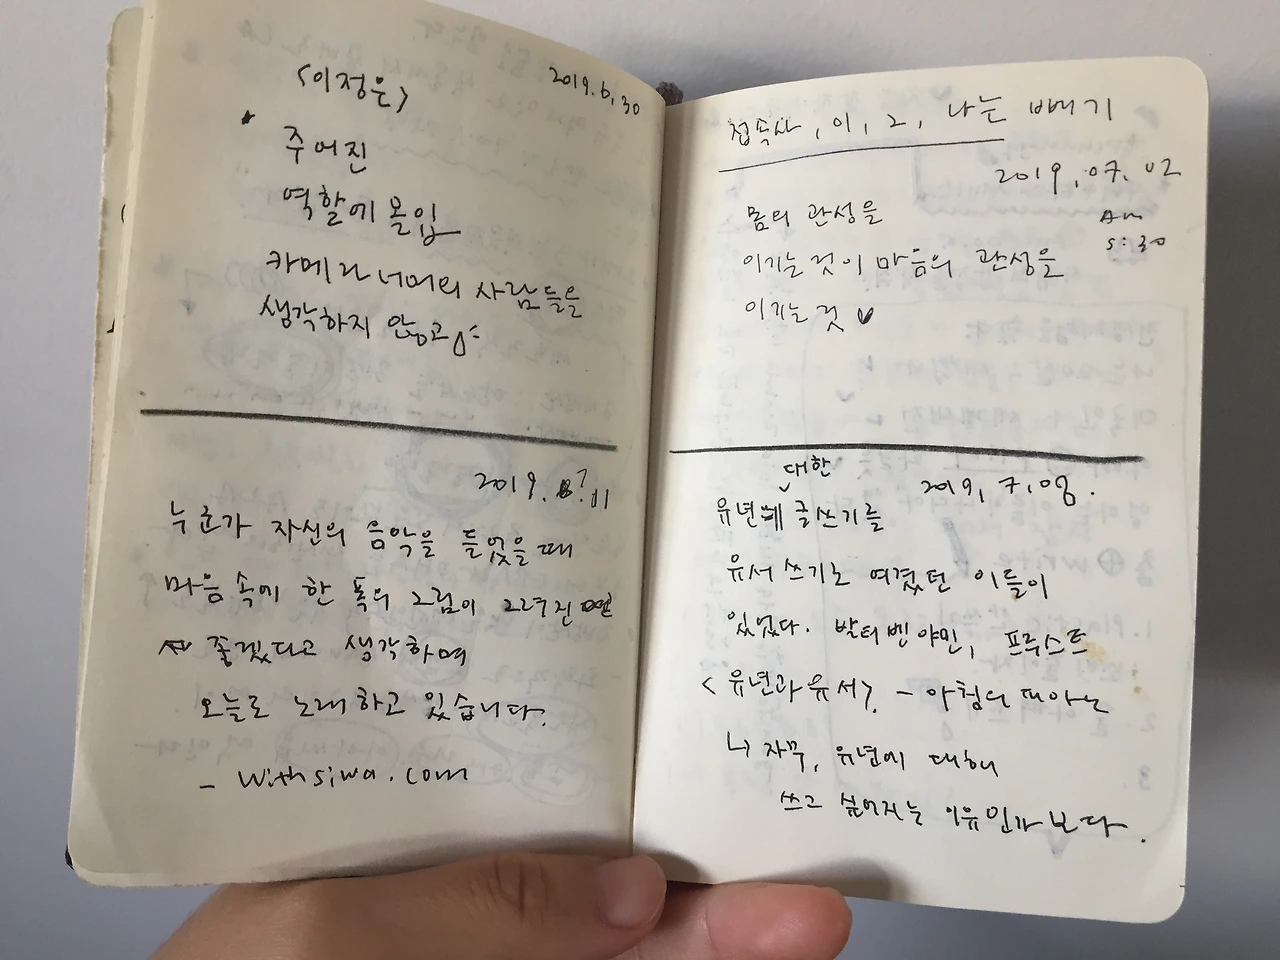 <이정은>
2019.6.30
주어진
역할에 몰입
카메라 너머의 사람들을
생각하지 않고
2019. 11
누군가 자신의 음악을 들었을 때
마음 속에 한 폭의 그림이 그려진다면
좋겠다고 생각하며
오늘도 노래하고 있습니다.
- withsiwa.com
접속사, 이, 그, 나는 빼기
2019.07.02
Am
5:30
몸의 관성을
이기는 것이 마음의 관성을
이기는 것
대한
유년에 글쓰기를
유서 쓰기로 여겼던 이들이
있었다. 발터벤야민, 프루스트
<유년과 유서>. - 아침의 피아노
↳ 자꾸, 유년에 대해
쓰고 싶어지는 이유인가보다.
2019. 7. 08.